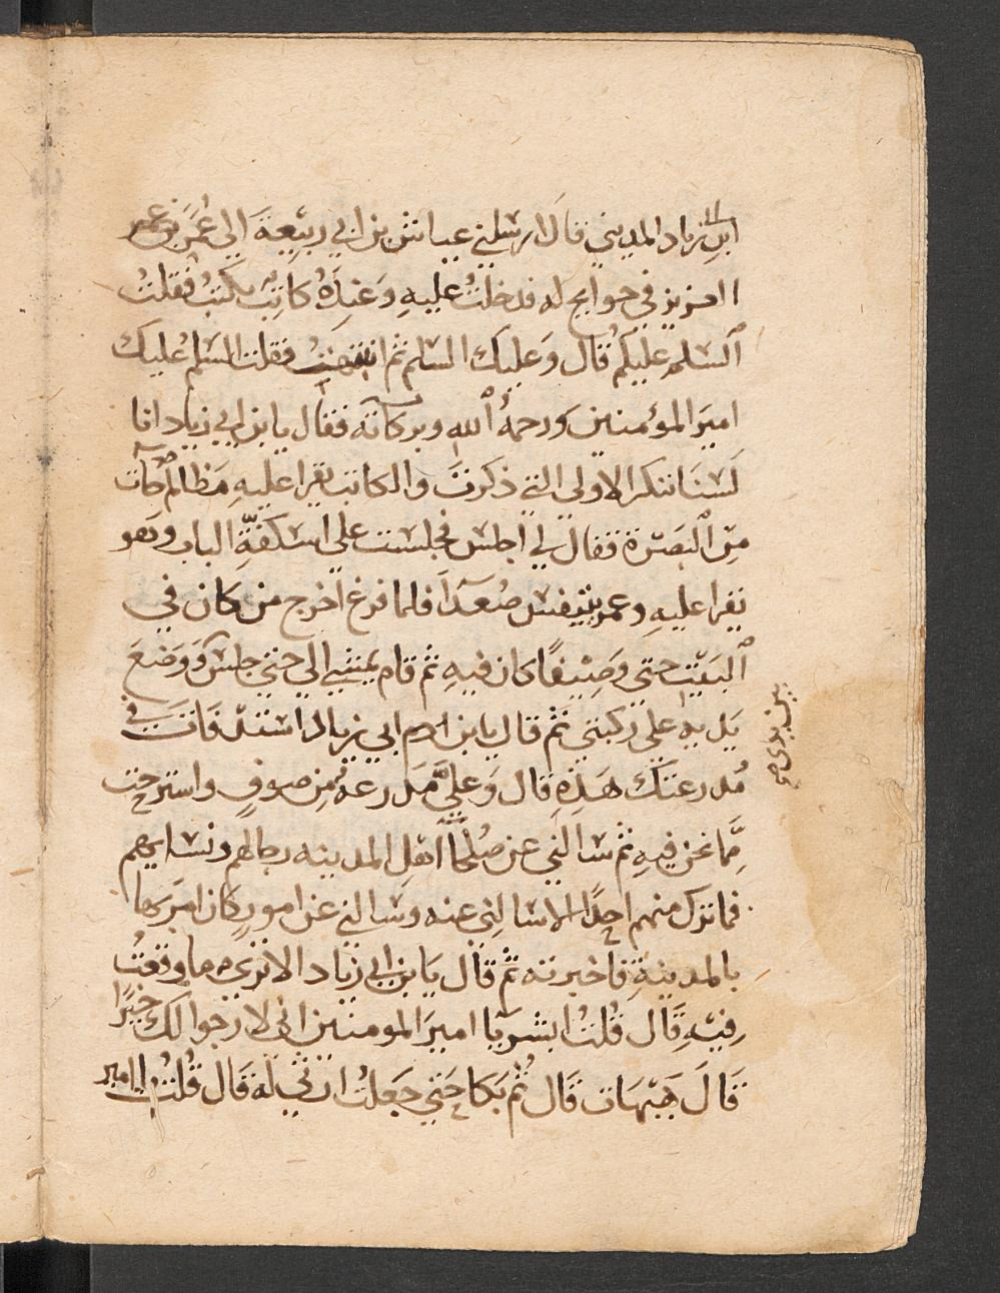 ابن زياد المديني قال ارسلني عياش بن ابي ربيعة الى عمر بن عبد
العزيز في حوايج له فدخلتُ عليهِ وَعندَهُ كاتب يكتبُ فقلتُ
السلم عليكم قال وَعليك السلم ثم انتبهت فقلت السلم عليك
اميرَ المؤمنين ورحمةُ الله وبركاته فقال يا بن ابي زياد انا
لَسنَا ننكر الاولى التي ذكرتَ والكاتب يقرا عليهِ مَظالم جات
مِن البَصْرة فقال لي اجلس فجلست على اسكفّةِ الباب وهو
يقرا عليهِ وعمر يتنفس صُعَدَا فلما فرغ اخرج من كان في
البَيْتِ حتى وَصِيفًا كان فيهِ ثم قام يمشي الي حتى جلس وَوَضعَ
يديه على ركبتي ثم قال يا بن ابي زياد استدفاتَ في
مُدرعتك هَذِهِ قال وَعليّ مَدرعة مِن صوفٍ واسترحت
مِمَّا نحن فيهِ ثم سالني عن صُلحاء اهل المدينه رجالهم ونسايهم
فما ترك منهم احدًا الا سالني عنه وسالني عن امورٍ كان امَر بها
بالمدينةِ فاخبرته ثم قال يَا بن ابي زياد الا ترى ما وقعتُ
فِيْهِ قَال قُلتُ ابشر يا اميرَ المومنين اني لارجوا لك خيرًا
قَالَ هَيْهَات قَال ثُم بَكا حَتى جَعلتُ ارثي لَه قَال قُلتُ يا امير
بين يدي